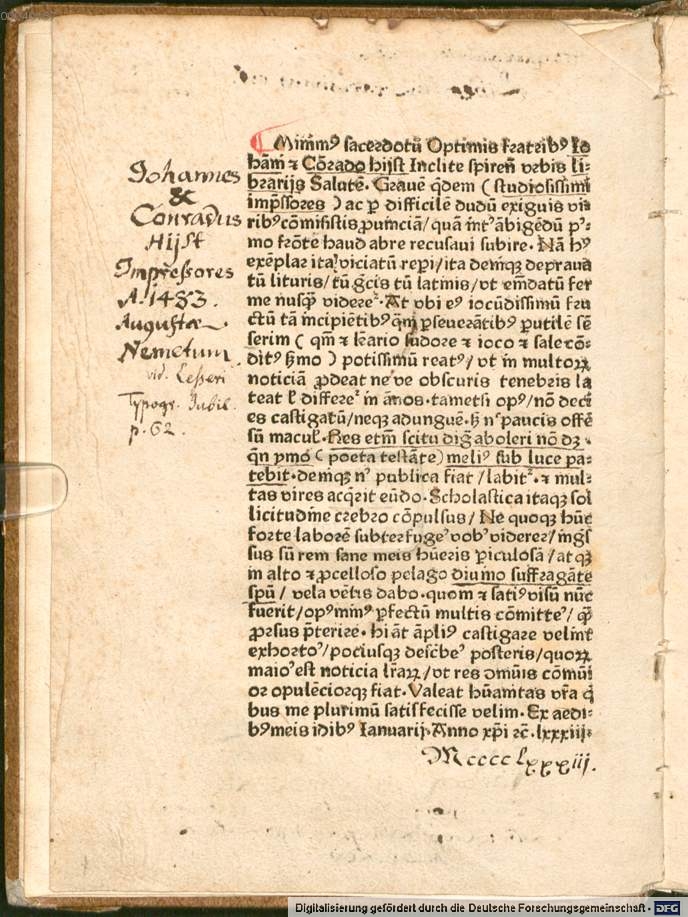 Johannes
&
Conradus
Hijst
Impressores
A. 1483.
Augustae
Nemetum
vid. Lesseri
Typogr. Jubil.
p. 62.
Minimꝰ sacerdotū Optimis fratribꝰ Io
hāni ⁊ Cōrado hijst Inclite spireñ vrbis li⸗
brarijs Salutē. Grauē q̄dem (studiosissimi
imp̄ssores) ac ꝑ difficilē dudū exiguis vi
ribꝰ cōmisistis ꝓuinciā/quā īnt ābigēdū pⁱ⸗
mo frōte haud abre recusaui subire. Nā hꝰ
exēplar ita viciatū repi/ita demqꝫ deprauā
tū lituris/tū grīcis tū latinis/vt emdatū fer
me nusqꝫ videreᷣ. At vbi eꝰ iocūdissimū fru
ctū tā incipiētibꝰ qm̄ ꝑseuerātibꝰ ꝑutilē sē
serim (qm̄ ⁊ sudore ⁊ ioco ⁊ sale cō⸗
ditꝰ) potissimū reatꝰ/vt in multoꝝ
noticiā ꝓdeat ne ve obscuris tenebris la
teat ł differeᷣ in ānos. tametsi opꝰ/nō deci
es castigatū/neqꝫ adunguē. ꝫ nᶜ paucis offē
sū macuł. Res etm̄ scitu diḡ aboleri nō dꝫ
qn̄ ymo (poeta testāte) meliꝰ sub luce pa⸗
tebit. demqꝫ nⁱ publica fiat/labitᷣ. ⁊ mul⸗
tas vires acq̄rit eūdo. Scholastica itaqꝫ sol
licitudīne crebro cōpulsus/Ne quoqꝫ hūc
forte laborē subterfugeᷣ vobꝰ viderer/ings̄
sus sū rem sane meis hūeris ꝑiculosā/atqꝫ
in alto ⁊ ꝓcelloso pelago diuino suffragāte
spū/ vela vētis dabo. quom ⁊ satiꝰ visū nūc
fuerit/opꝰ minꝰ ꝑfectū multis cōmitteᷣ/ qꝫ
ꝓrsus p̄terire. hi āt āpliꝰ castigare velint
exhortoᷣ/pociusqꝫ descb̄eᷣ posteris/quoꝝ
maioᷣ est noticia lr̄aꝝ/vt res om̄uīs cōmūi
or opulēciorqꝫ fiat. Valeat hūanitas vr̄a q̄
bus me plurimū satisfecisse velim. Ex aedi⸗
bꝰ meis idibꝰ Ianuarij. Anno xp̄i ⁊c̄. lxxxiij.
Mcccclxxxiij.
Digitalisierung gefördert durch die Deutsche Forschungsgemeinschaft - DFG